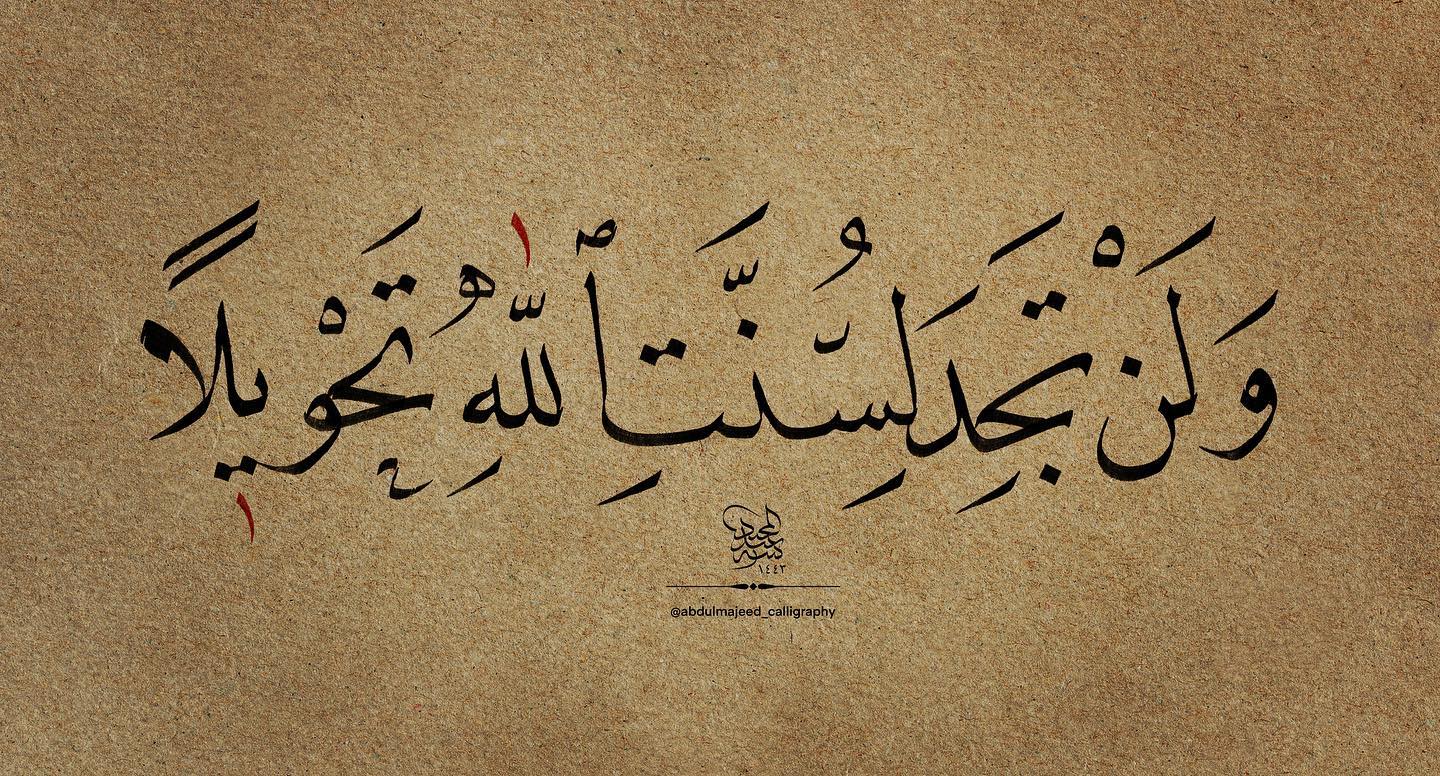 وَلَنْ تَجِدَ لِسُنَّتِ ٱللَّهِ تَحْوِيلًا
كتبه عبد المجيد
@abdulmajeed_calligraphy